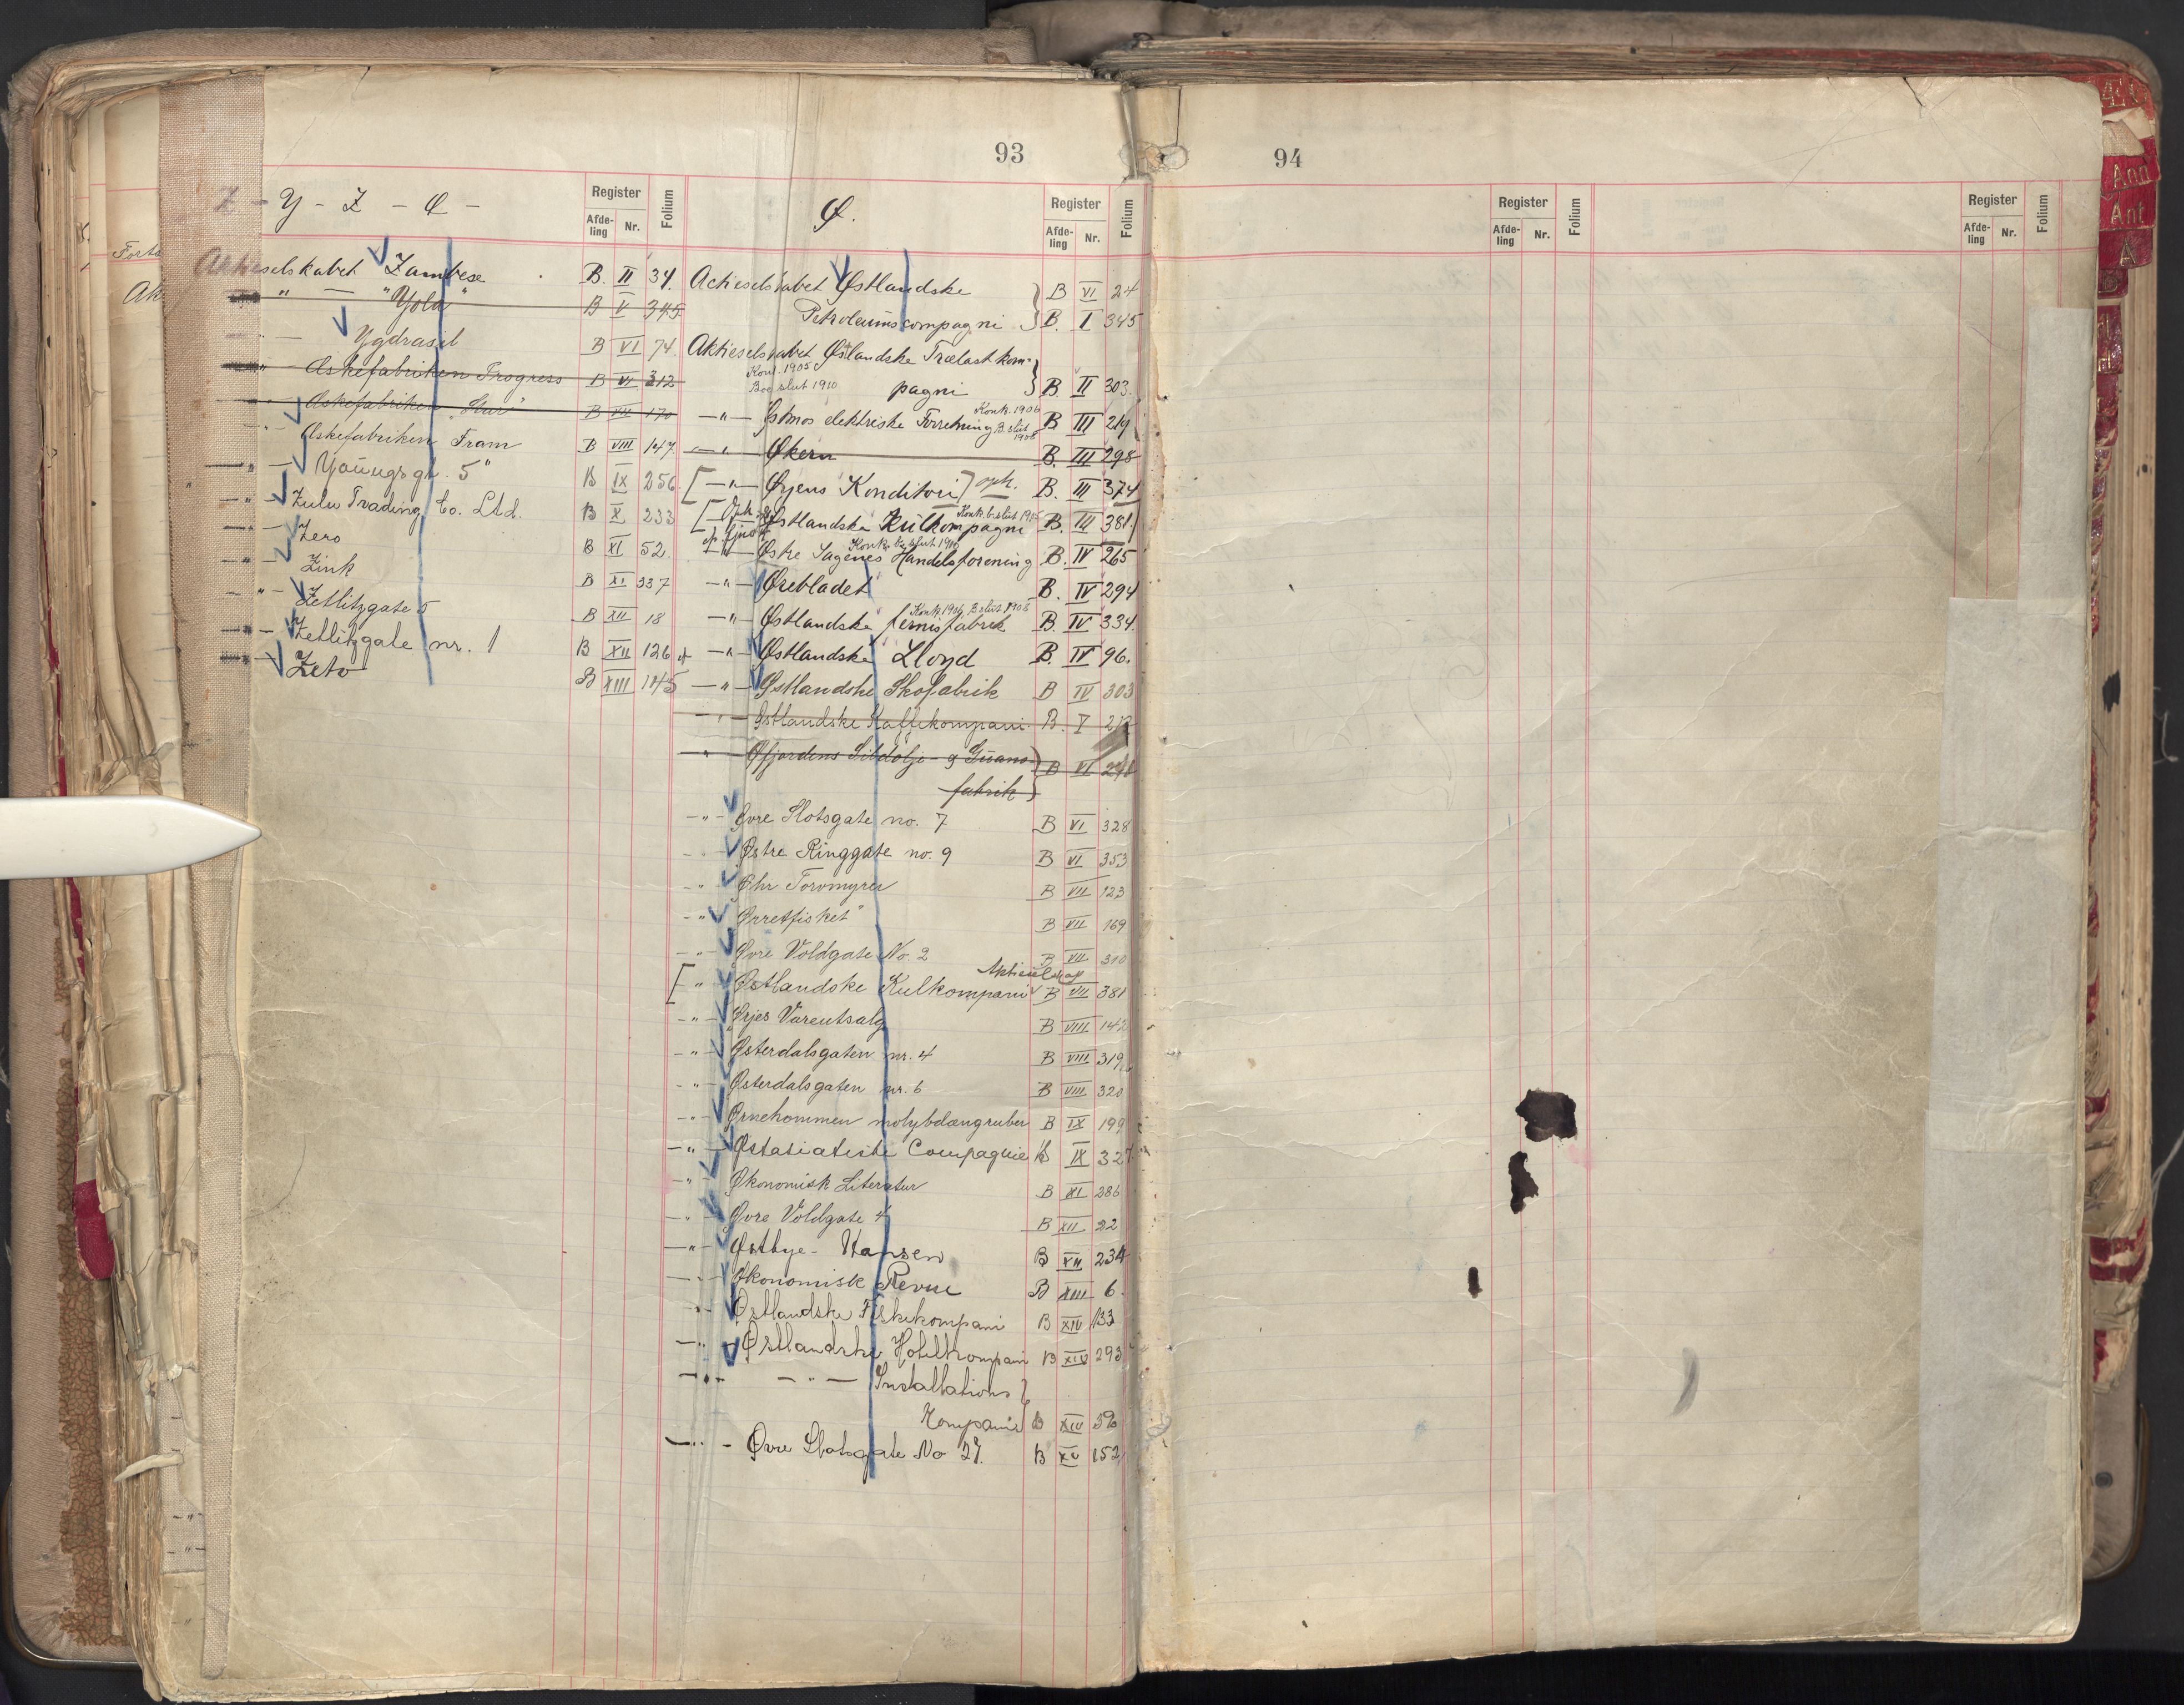 93
Y - Z - Ø -
Register
Afde-
ling
Nr.
Folium
Aktieselskabet Zambese B. II 34.
" — "Yola" B V 345
— Ygdrasil B VI 74.
" - Æskefabriken Progress B VI 212
" Æskefabriken "Stur" B VII 170
" - Æskefabriken Fram B VIII 147.
— " — Youngsgt. 5" B IX 256
— " — Zulu Trading Co. Ltd. B X 233
— " — Zero B XI 52.
— " — Zink B XI 337
— " — Zetlitzgate 5 B XII 18
— " — Zetlitzgate nr. 1 B XII 126
— " — Zeto B XIII 145
Ø.
Register
Afde-
ling
Nr.
Folium
Actieselskabet Østlandske B VI 24
Petroleumscompagni B. I 345
Aktieselskabet Østlandske Trælastkom-
Konk. 1905
Boe slut 1910
pagni B. II 303.
Konk. 1906
— " — Østmos elektriske Forretning B. slut 1908 B III 214
— " — Økern B. III 298
[— " — Ørjens Konditori] oph. B. III 374
Konk. b. slut 1915
[Østlandske Kulkompagni B. III 381.]
Konk. Bo slut 1910
— " — Østre Sagenes Handelsforening B. IV 265
— " — Ørebladet B. IV 294
Konk. 1906 B slut 1908
— " — Østlandske fernisfabrik B. IV 334.
— " — Østlandske Lloyd B. IV 96.
— " — Østlandske Skofabrik B IV 303
— " — Østlandske Kaffekompani B. V 212
— " — Øfjordens Sildolje- og Guano-
fabrik B VI 241
— " — Øvre Slotsgate no. 7 B VI 328
— " — Østre Ringgate no. 9 B VI 353
— " — Øhr Torvmyrer B VII 123
— " — Ørretfisket" B VII 169
— " — Øvre Voldgate No. 2 B VII 310
Aktieselskap
[ " Østlandske Kulkompani B VII 381
— " — Ørjes Vareutsalg B VIII 142
— " — Østerdalsgaten nr. 4 B VIII 319
— " — Østerdalsgaten nr. 6 B VIII 320
— " — Ørnehommen molybdængruber B IX 199
— " — Østasiatiske Compagnie B IX 327
— " — Økonomisk Literatur B XI 286
— " — Øvre Voldgate 4 B XII 22
— " — Østbye - Hansen B XII 234
— " — Økonomisk Revue B XIII 6.
— " — Østlandske Fiskekompani B XIV 133
— " — Østlandske Hotelkompani B XIV 293
— " — — " — Installations
Kompani B XIV 390
— " — Øvre Slotsgate No 27. B XV 152
94
Register
Afde-
ling
Nr.
Folium
Register
Afde-
ling
Nr.
Folium
And
Ant
A